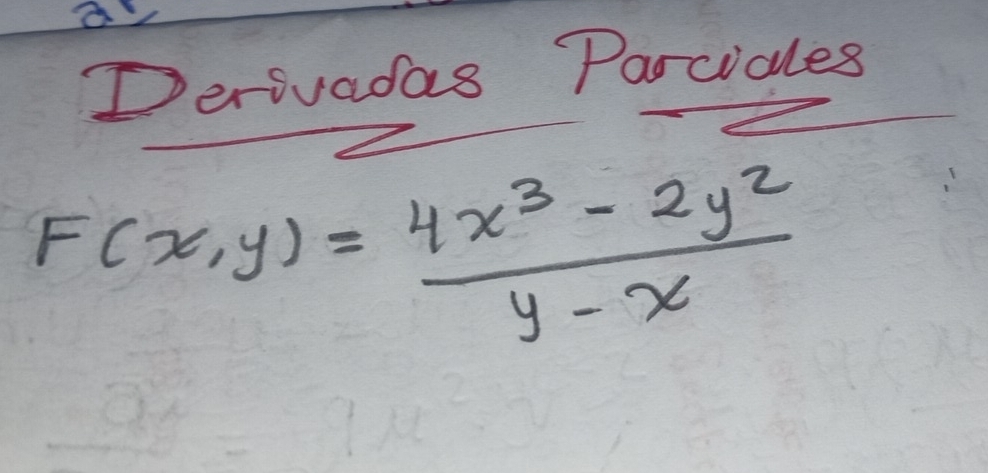 Derivadas Parciales
F(x,y) = \frac{4x^3 - 2y^2}{y - x}